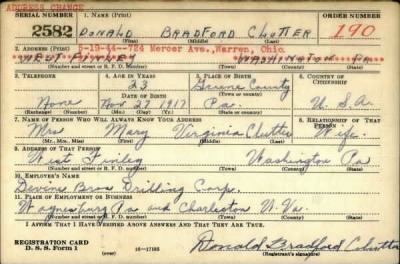 ADDRESS CHANGE
SERIAL NUMBER 1. NAME (Print) ORDER NUMBER
2582 DONALD BRADFORD CLUTTER 190
(First) (Middle) (Last)
2. ADDRESS (Print) 5-19-44--724 Mercer Ave., Warren, Ohio.
WEST FINLEY WASHINGTON PA
(Number and street or R. F. D. number) (Town) (County) (State)
3. TELEPHONE 4. AGE IN YEARS 5. PLACE OF BIRTH 6. COUNTRY OF CITIZENSHIP
23 Greene County
DATE OF BIRTH (Town or county)
None Nov 27 1917 Pa. U. S. A.
(Exchange) (Number) (Mo.) (Day) (Yr.) (State or country)
7. NAME OF PERSON WHO WILL ALWAYS KNOW YOUR ADDRESS 8. RELATIONSHIP OF THAT PERSON
Mrs Mary Virginia Clutter Wife
(Mr., Mrs., Miss) (First) (Middle) (Last)
9. ADDRESS OF THAT PERSON
West Finley Washington Pa
(Number and street or R. F. D. number) (Town) (County) (State)
10. EMPLOYER'S NAME
Devine Bros Drilling Corp.
11. PLACE OF EMPLOYMENT OR BUSINESS
Waynesburg Pa and Charleston W. Va.
(Number and street or R. F. D. number) (Town) (County) (State)
I AFFIRM THAT I HAVE VERIFIED ABOVE ANSWERS AND THAT THEY ARE TRUE.
REGISTRATION CARD
D. S. S. Form 1 (over) 16-17105 Donald Bradford Clutter
(Registrant's signature)